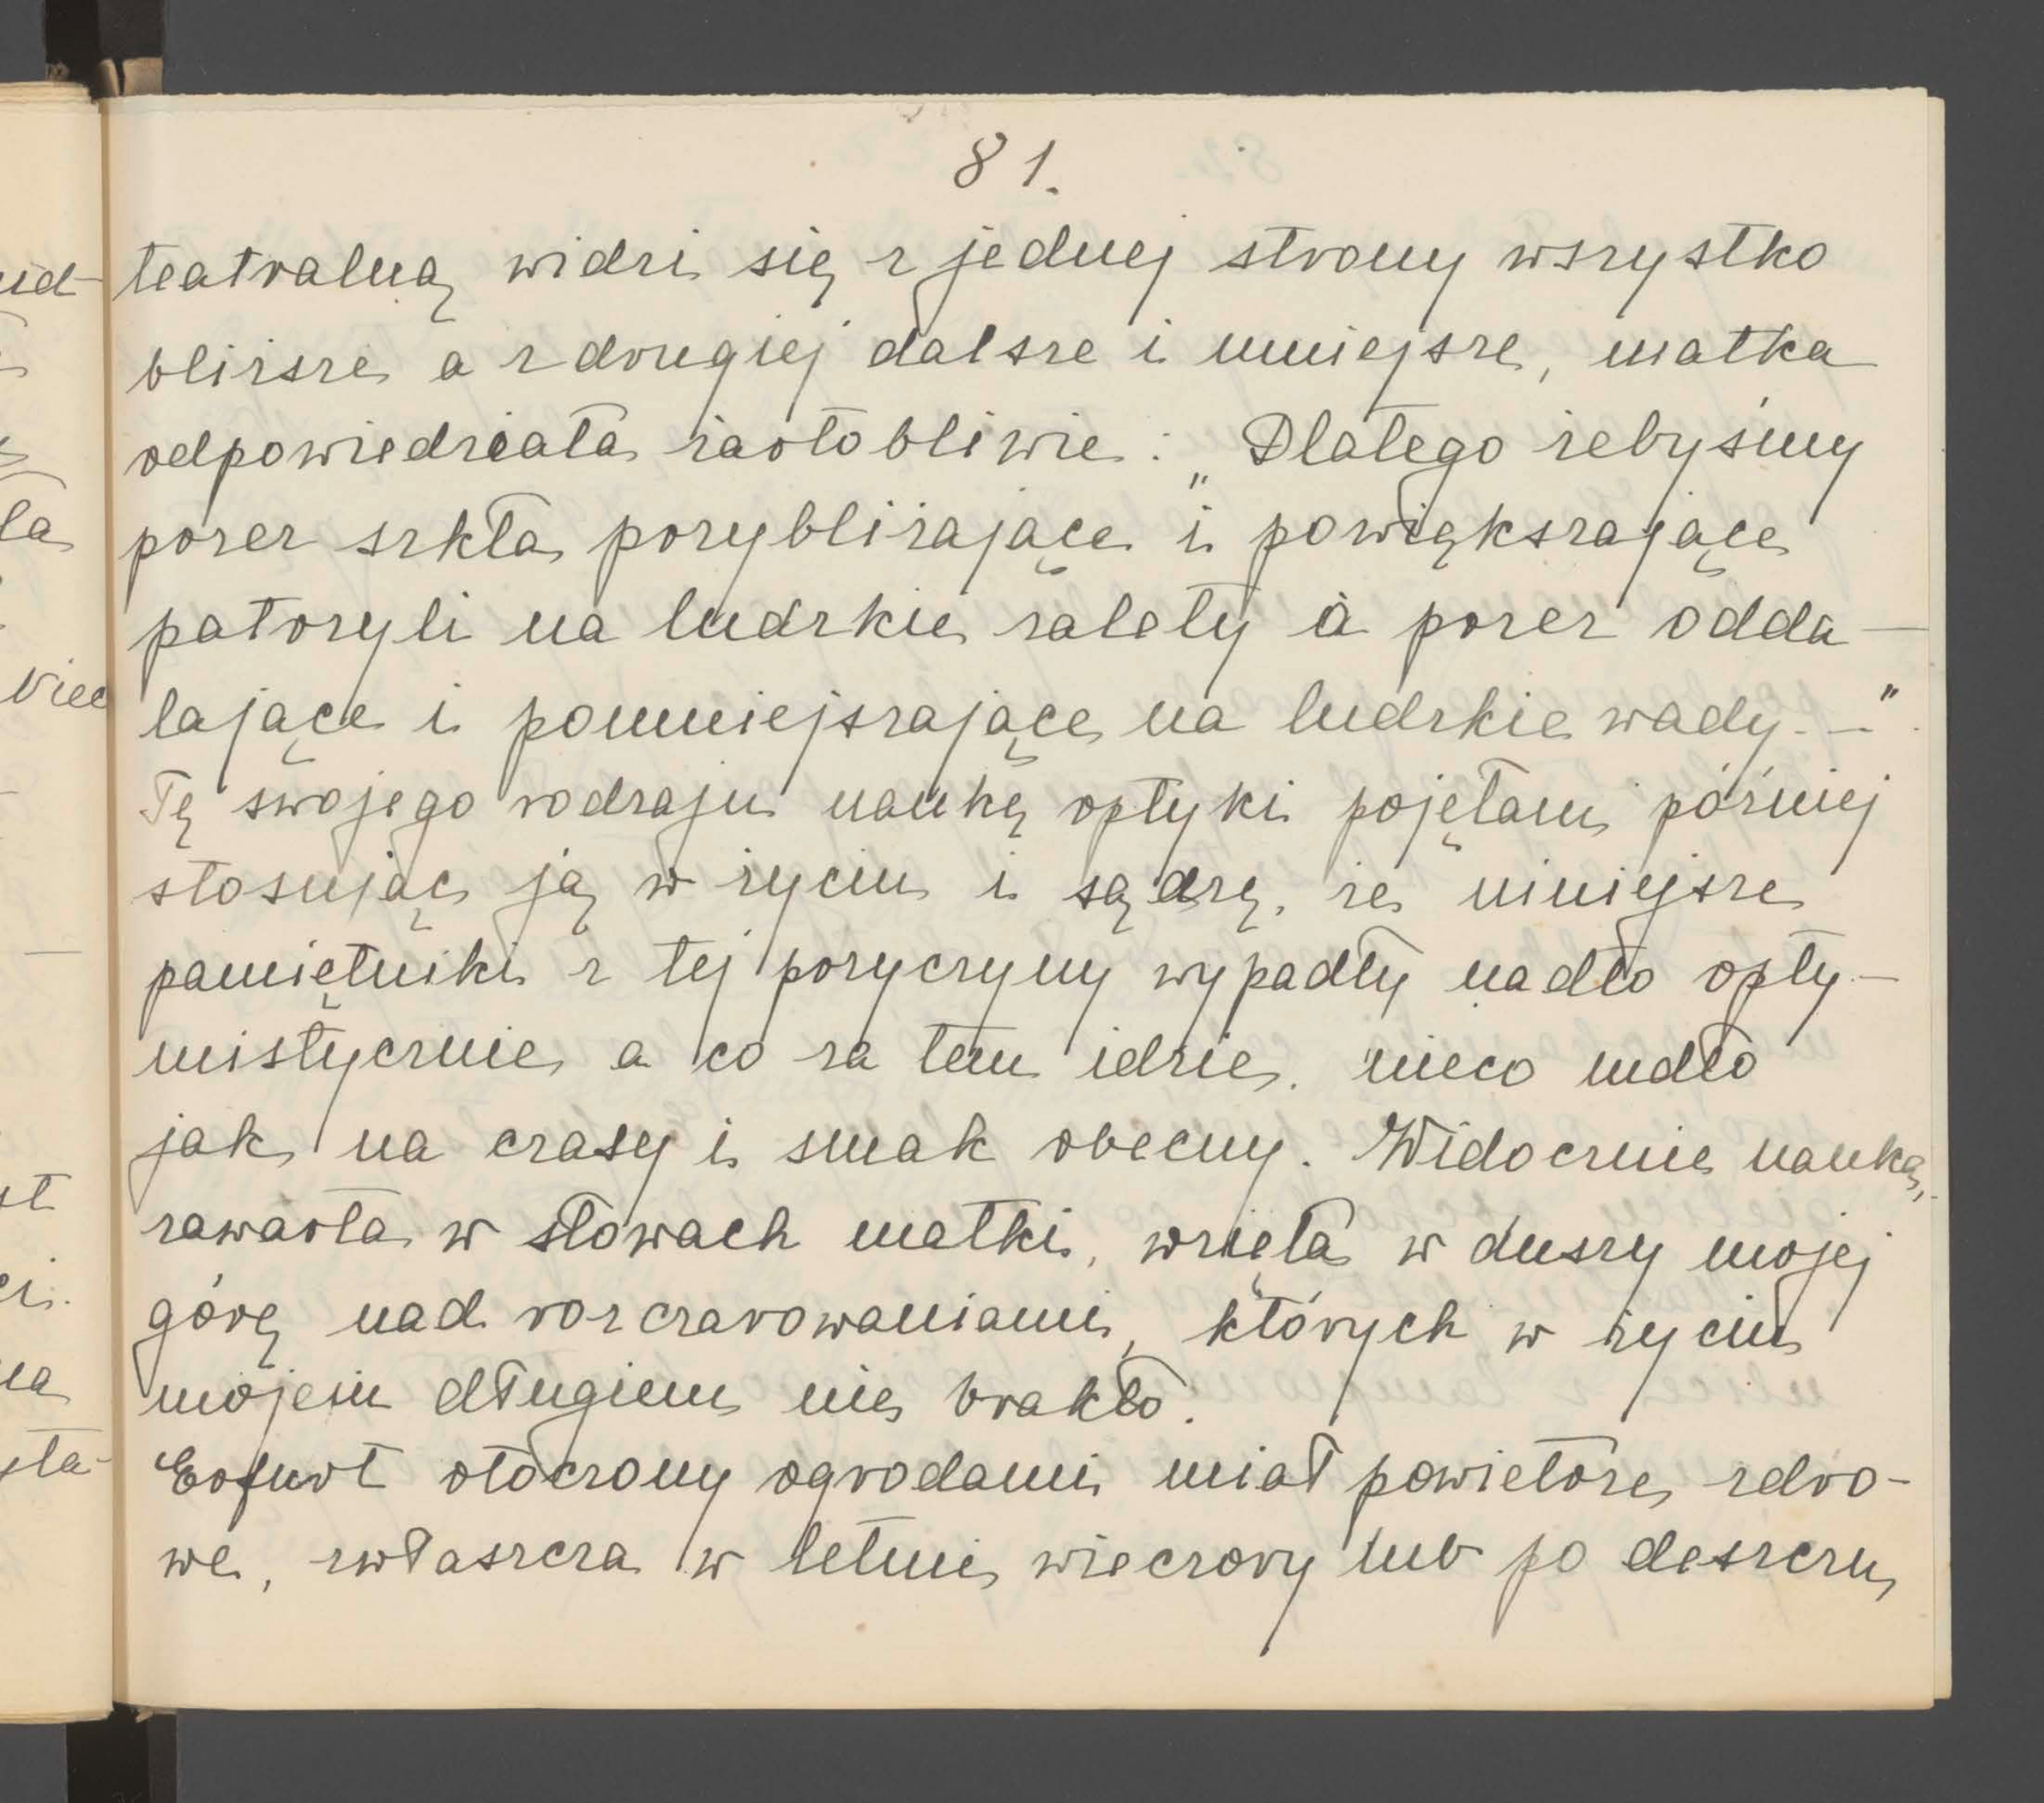 81.
teatralną widzi się z jednej strony wszystko
bliższe a z drugiej dalsze i mniejsze, matka
odpowiedziała żartobliwie: „Dlatego żebyśmy
przez szkła przybliżające i powiększające
patrzyli na ludzkie zalety a przez odda-
lające i pomniejszające na ludzkie wady. –"
Tę swojego rodzaju naukę optyki pojęłam później
stosując ją w życiu i sądzę, że niniejsze
pamiętniki z tej przyczyny wypadły nadto opty-
mistycznie a co za tem idzie, nieco mdło
jak na czasy i smak obecny. Widocznie nauka,
zawarta w słowach matki, wzięła w duszy mojej
górę nad rozczarowaniami, których w życiu
mojem długiem nie brakło.
Erfurt otoczony ogrodami miał powietrze zdro-
we, zwłaszcza w letnie wieczory lub po deszczu,